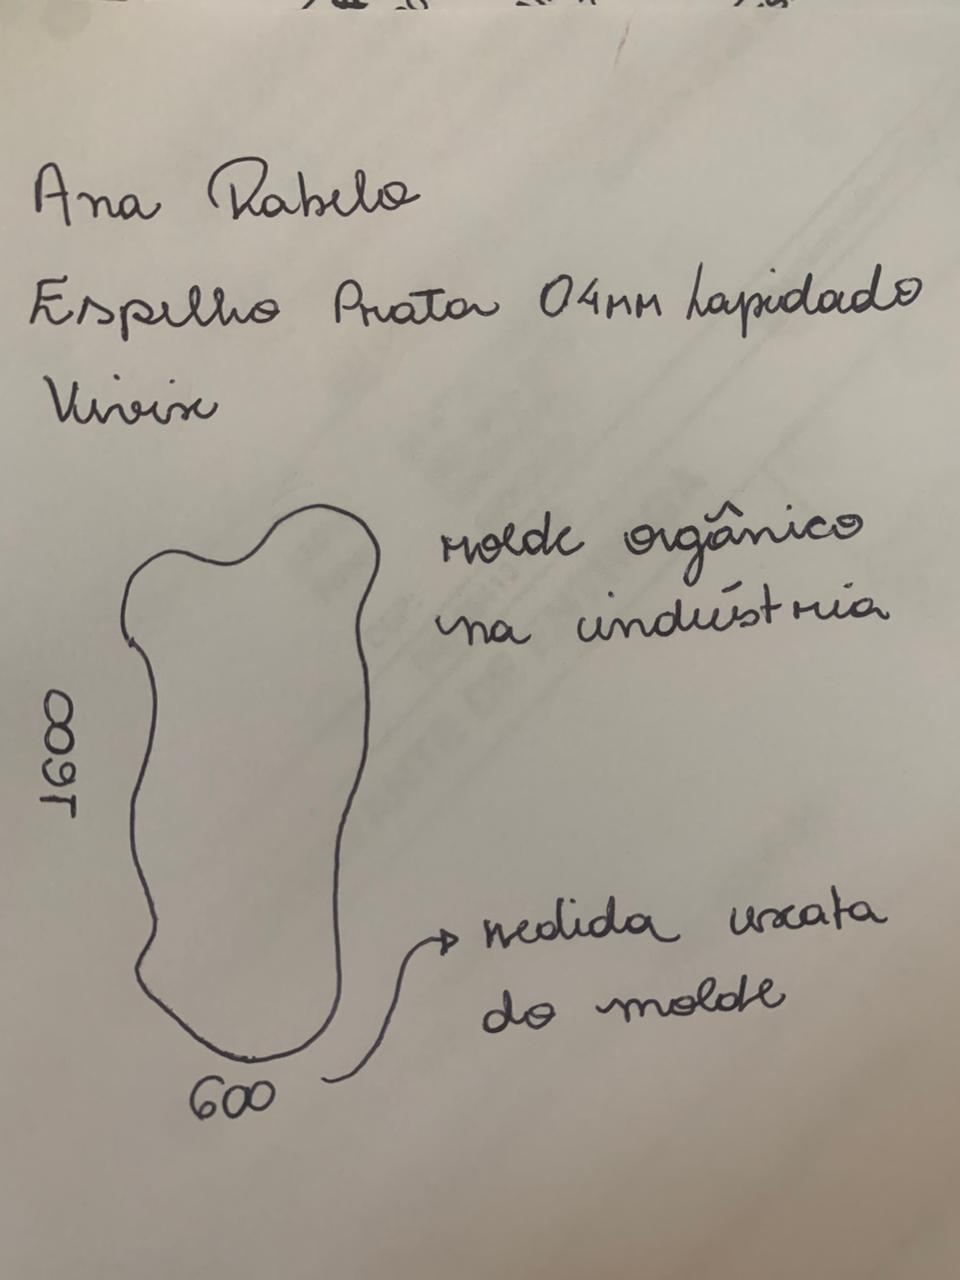 Ana Rabelo
Espelho Prata 04mm Lapidado
Vivix
molde orgânico
na indústria
1600
medida exata
do molde
600